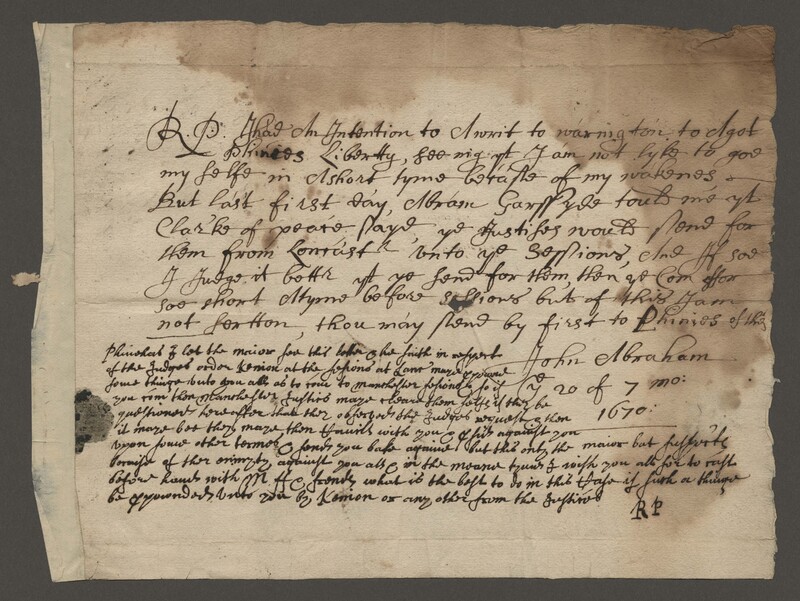 R. P. I had An Intention to Awrit to warington, to Agot
Phinies Libertty, seeing yt I am not lyke to goe
my selfe in Ashort tyme becasse of my watenes
But last first day, Abram Garssyde tould me yt
Clarke of peace sayd, ye Justises would send for
them from Loncastr unto ye Sessions, And If soe
I Judge it bettr yt ye send for them then ye Com
soe short Atyme before sessions but of this I am
not sertton, thou may send by first to Phinies of this
John Abraham
ye 20 of 7 mo:
1670:
Phinehas I let the maior see this letter & he saith in respect
of the Judges order Kenion at the sesions at Lanr maye
some thinge unto you all as to com to manchester sesions & so if
you com then Manchester Justics maye cleare them selfs if they be
questioned hereafter that they observed the Judges request & then
it maye bee they maye then with you & against you
upon some other termes & send you bake againe but this only the maior but
because of ther enimyty against you all & in the meane tyme I wish you all for to cast
before hand with M ff & frends what is the best to do in this Case if such a thinge
be unto you by Kenion or any other from the Justices
RP